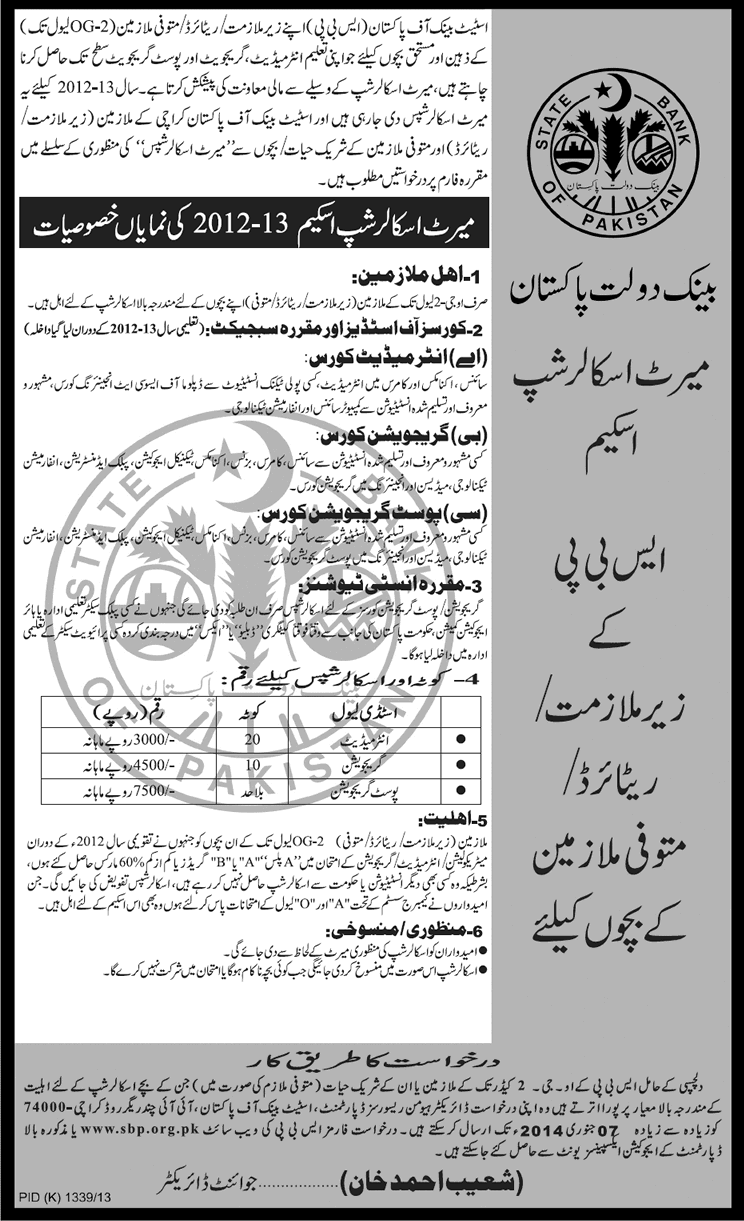 اسٹیٹ بینک آف پاکستان (ایس بی پی) اپنے زیر ملازمت/ریٹائرڈ/متوفی ملازمین (OG-2 لیول تک)
کے ذہین اور مستحق بچوں کیلئے جو اپنی تعلیم انٹرمیڈیٹ، گریجویٹ اور پوسٹ گریجویٹ سطح تک حاصل کرنا
چاہتے ہیں، میرٹ اسکالرشپ کے وسیلے سے مالی معاونت کی پیشکش کرتا ہے۔ سال 13-2012 کیلئے یہ
میرٹ اسکالرشپس دی جارہی ہیں اور اسٹیٹ بینک آف پاکستان کراچی کے ملازمین (زیر ملازمت/
ریٹائرڈ) اور متوفی ملازمین کے شریک حیات/بچوں سے "میرٹ اسکالرشپس" کی منظوری کے سلسلے میں
مقررہ فارم پر درخواستیں مطلوب ہیں۔
میرٹ اسکالرشپ اسکیم 13-2012 کی نمایاں خصوصیات
1-اھل ملازمین:
صرف او جی-2 لیول تک کے ملازمین (زیر ملازمت/ریٹائرڈ/متوفی) اپنے بچوں کے لئے مندرجہ بالا اسکالرشپ کے لئے اہل ہیں۔
2-کورسز آف اسٹڈیز اور مقررہ سبجیکٹ: (تعلیمی سال 13-2012 کے دوران لیا گیا داخلہ)
(اے) انٹرمیڈیٹ کورس:
سائنس، اکنامکس اور کامرس میں انٹرمیڈیٹ، کسی پولی ٹیکنک انسٹیٹیوٹ سے ڈپلوما آف ایسوسی ایٹ انجینئرنگ کورس، مشہور و
معروف اور تسلیم شدہ انسٹیٹیوشن سے کمپیوٹر سائنس اور انفارمیشن ٹیکنالوجی۔
(بی) گریجویشن کورس:
کسی مشہور و معروف اور تسلیم شدہ انسٹیٹیوشن سے سائنس، کامرس، بزنس، اکنامکس، ٹیکنیکل ایجوکیشن، پبلک ایڈمنسٹریشن، انفارمیشن
ٹیکنالوجی، میڈیسن اور انجینئرنگ میں گریجویشن کورس۔
(سی) پوسٹ گریجویشن کورس:
کسی مشہور و معروف اور تسلیم شدہ انسٹیٹیوشن سے سائنس، کامرس، بزنس، اکنامکس، ٹیکنیکل ایجوکیشن، پبلک ایڈمنسٹریشن، انفارمیشن
ٹیکنالوجی، میڈیسن اور انجینئرنگ میں پوسٹ گریجویشن کورس۔
3-مقررہ انسٹی ٹیوشنز:
گریجویشن/پوسٹ گریجویشن کورسز کے لئے اسکالرشپس صرف ان طلبہ کو دی جائے گی جنہوں نے کسی پبلک سیکٹر تعلیمی ادارہ یا ہائر
ایجوکیشن کمیشن، حکومت پاکستان کی جانب سے وقتاً فوقتاً کیٹگری "ڈبلیو" یا "ایکس" میں درجہ بندی کردہ کسی پرائیویٹ سیکٹر کے تعلیمی
ادارہ میں داخلہ لیا ہوگا۔
4-کوٹہ اور اسکالرشپس کیلئے رقم:
اسٹڈی لیول کوٹہ رقم (روپے)
● انٹرمیڈیٹ 20 3000/- روپے ماہانہ
● گریجویشن 10 4500/- روپے ماہانہ
● پوسٹ گریجویشن بلاحد 7500/- روپے ماہانہ
5-اھلیت:
ملازمین (زیر ملازمت/ریٹائرڈ/متوفی) OG-2 لیول تک کے ان بچوں کو جنہوں نے تقویمی سال 2012ء کے دوران
میٹریکولیشن/انٹرمیڈیٹ/گریجویشن کے امتحان میں "A پلس" "A" یا "B" گریڈز یا کم از کم 60% مارکس حاصل کئے ہوں،
بشرطیکہ وہ کسی بھی دیگر انسٹیٹیوشن یا حکومت سے اسکالرشپ حاصل نہیں کررہے ہیں، اسکالرشپس تفویض کی جائیں گی۔ جن
امیدواروں نے کیمبرج سسٹم کے تحت "A" اور "O" لیول کے امتحانات پاس کرلئے ہوں وہ بھی اس اسکیم کے لئے اہل ہیں۔
6-منظوری/منسوخی:
● امیدواران کو اسکالرشپ کی منظوری میرٹ کے لحاظ سے دی جائے گی۔
● اسکالرشپ اس صورت میں منسوخ کردی جائیگی جب کوئی بچہ ناکام ہوگا یا امتحان میں شرکت نہیں کرے گا۔
STATE BANK OF PAKISTAN
بینک دولت پاکستان
بینک دولت پاکستان
میرٹ اسکالرشپ
اسکیم
ایس بی پی
کے
زیر ملازمت/
ریٹائرڈ/
متوفی ملازمین
کے بچوں کیلئے
STATE BANK OF PAKISTAN
بینک دولت پاکستان
درخواست کا طریق کار
دلچسپی کے حامل ایس بی پی کے او۔جی۔ 2 کیڈر تک کے ملازمین یا ان کے شریک حیات (متوفی ملازم کی صورت میں) جن کے بچے اسکالرشپ کے لئے اہلیت
کے مندرجہ بالا معیار پر پورا اترتے ہیں وہ اپنی درخواست ڈائریکٹر ہیومن ریسورسز ڈپارٹمنٹ، اسٹیٹ بینک آف پاکستان، آئی آئی چندریگر روڈ کراچی-74000
کو زیادہ سے زیادہ 07 جنوری 2014ء تک ارسال کرسکتے ہیں۔ درخواست فارمز ایس بی پی کی ویب سائٹ www.sbp.org.pk یا مذکورہ بالا
ڈپارٹمنٹ کے ایجوکیشن ایکسپینسز یونٹ سے حاصل کئے جاسکتے ہیں۔
(شعیب احمد خان)..............جوائنٹ ڈائریکٹر
PID (K) 1339/13